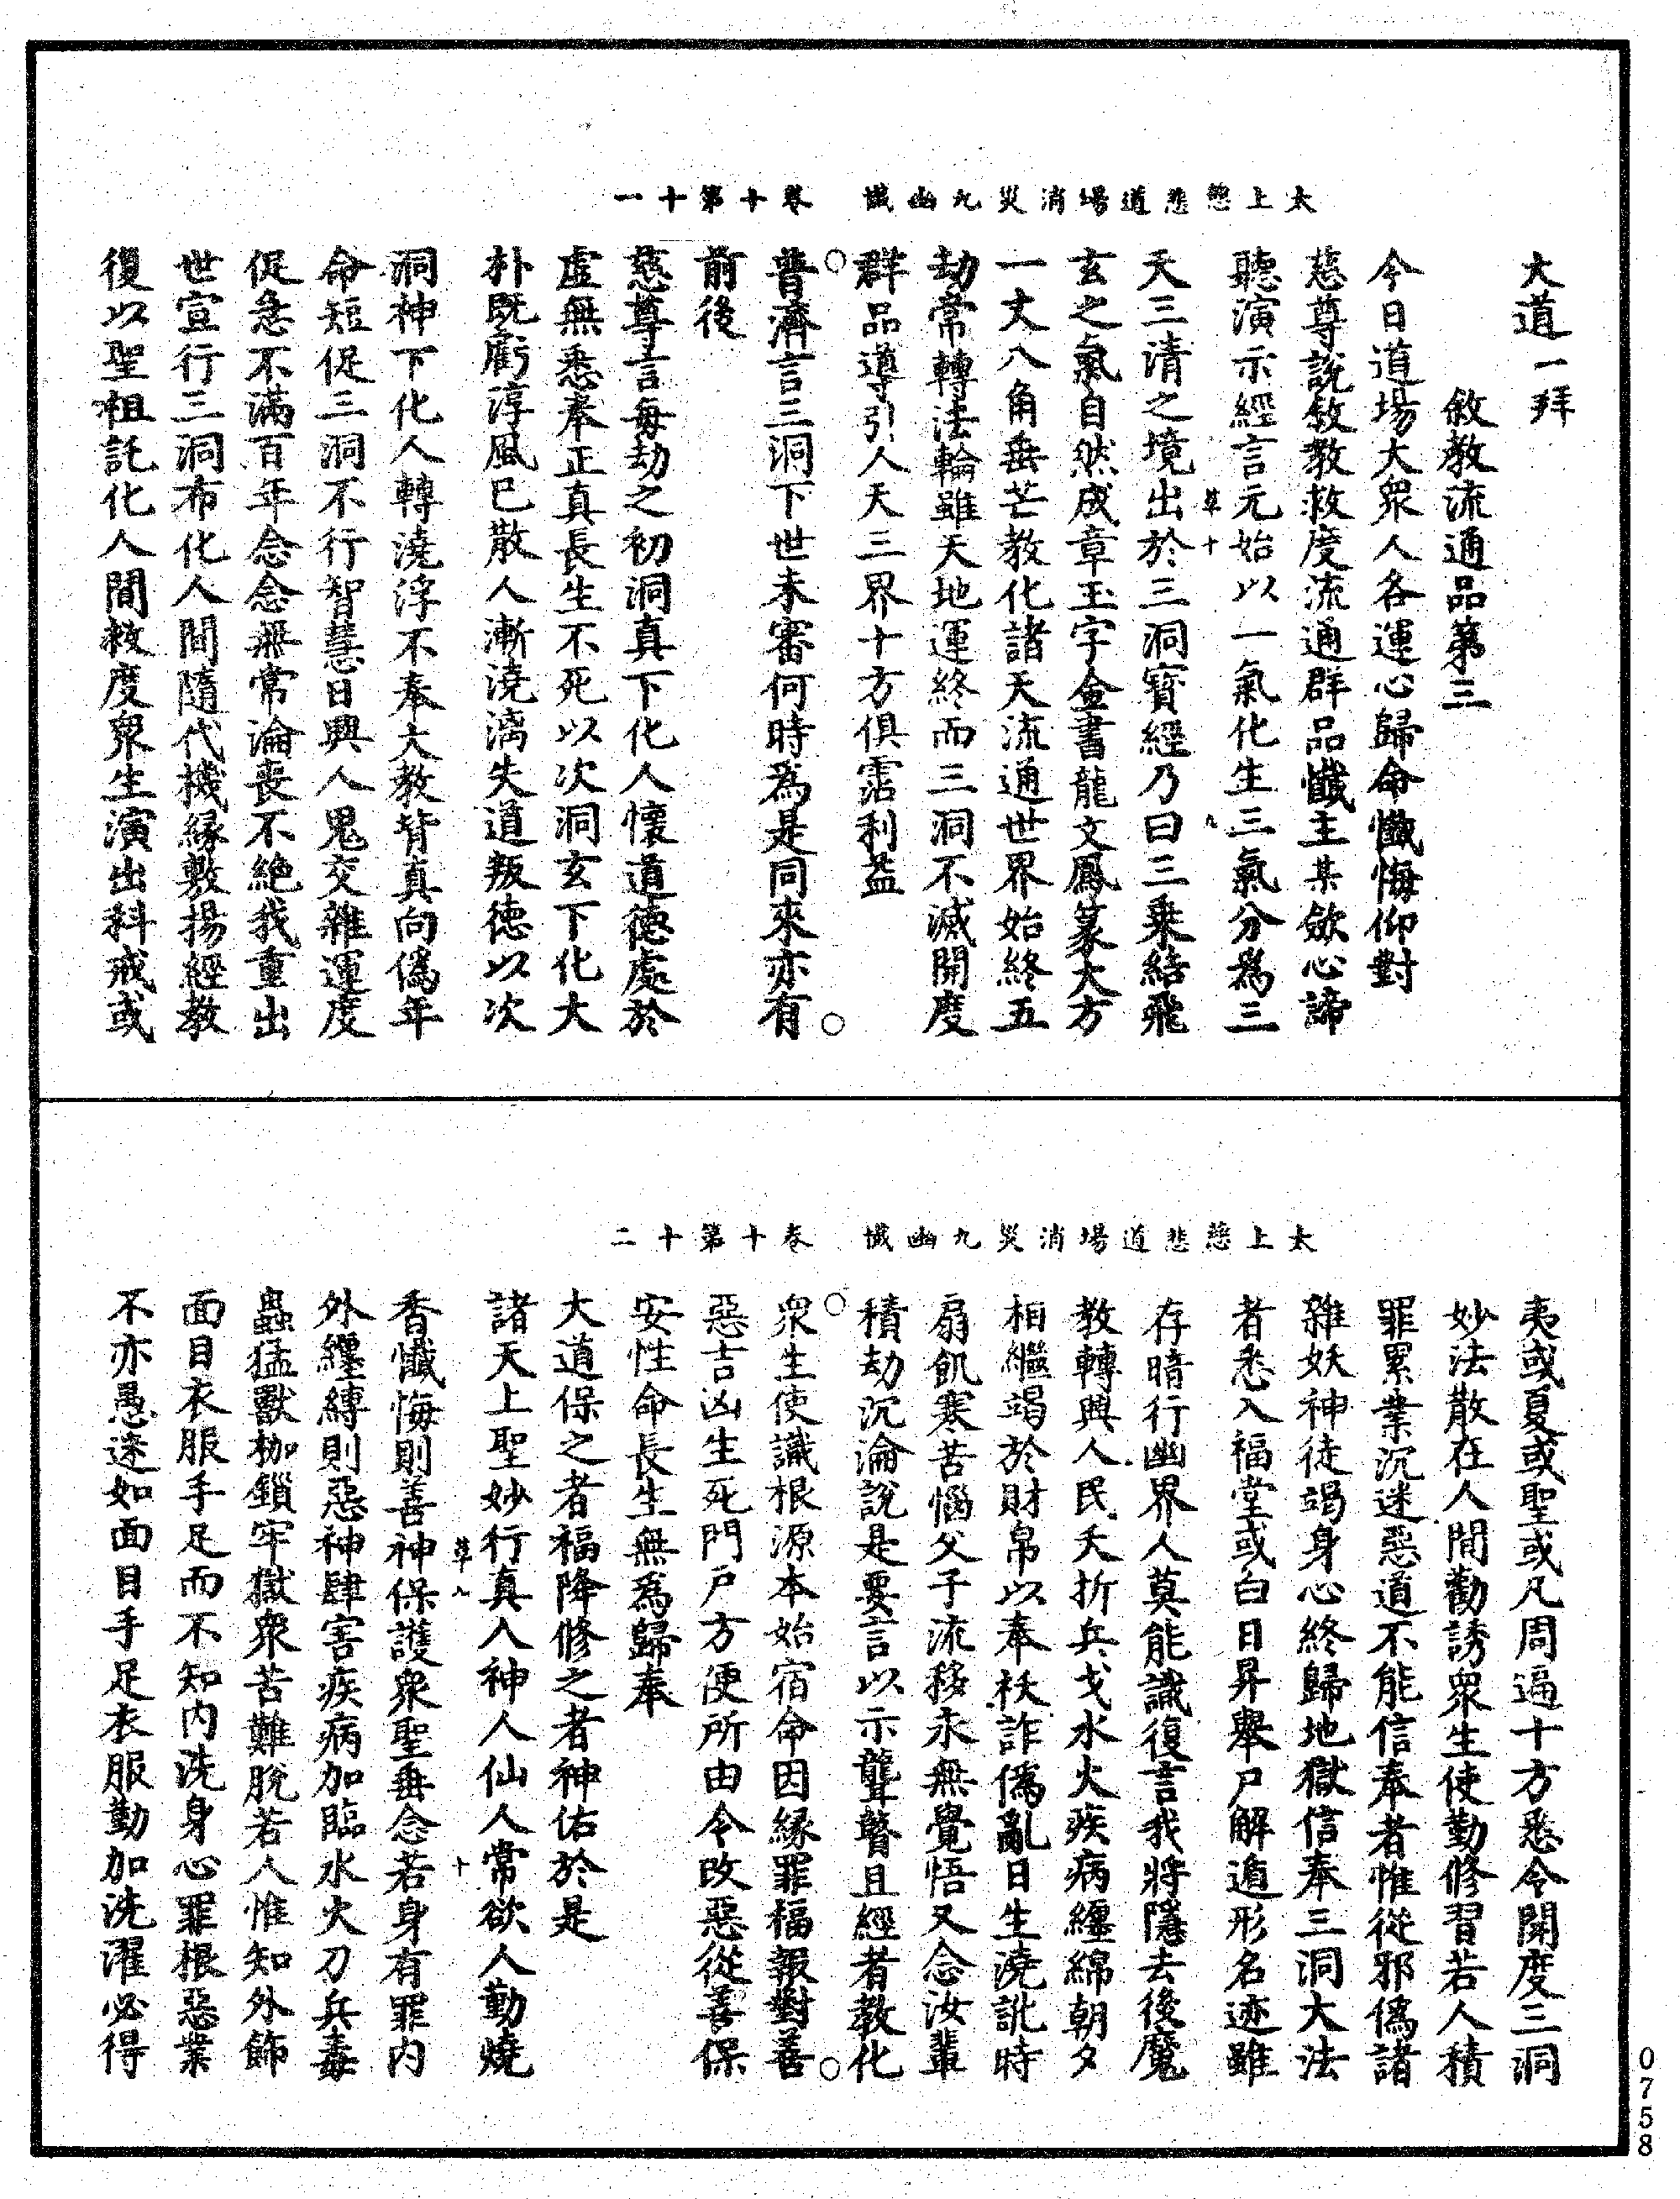 太上慈悲道場消災九幽懺　卷十第十一
大道一拜
敘教流通品第三
今日道場大眾人各運心歸命懺悔仰對
慈尊說敘教救度流通群品懺主某斂心諦
聽演示經言元始以一氣化生三氣分為三
草十
九
天三清之境出於三洞寶經乃曰三乘結飛
玄之氣自然成章玉字金書龍文鳳篆大方
一丈八角垂芒教化諸天流通世界始終五
劫常轉法輪雖天地運終而三洞不滅開度
群品導引人天三界十方俱霑利益
普濟言三洞下世未審何時為是同來亦有
前後
慈尊言每劫之初洞真下化人懷道德處於
虛無悉奉正真長生不死以次洞玄下化大
朴既虧淳風已散人漸澆漓失道叛德以次
洞神下化人轉澆浮不奉大教背真向偽年
命短促三洞不行智慧日興人鬼交雜運度
促急不滿百年念念無常淪喪不絕我重出
世宣行三洞布化人間隨代機緣敷揚經教
復以聖祖託化人間救度眾生演出科戒或
太上慈悲道場消災九幽懺　卷十第十二
夷或夏或聖或凡周遍十方悉令開度三洞
妙法散在人間勸誘眾生使勤修習若人積
罪累業沉迷惡道不能信奉者惟從邪偽諸
雜妖神徒竭身心終歸地獄信奉三洞大法
者悉入福堂或白日昇舉尸解遁形名迹雖
存暗行幽界人莫能識復言我將隱去後魔
教轉興人民夭折兵戈水火疾病纏綿朝夕
相繼竭於財帛以奉祅詐偽亂日生澆訛時
扇飢寒苦惱父子流移永無覺悟又念汝輩
積劫沉淪說是要言以示聾瞽且經者教化
眾生使識根源本始宿命因緣罪福報對善
惡吉凶生死門戶方便所由令改惡從善保
安性命長生無為歸奉
大道保之者福降修之者神佑於是
諸天上聖妙行真人神人仙人常欲人勤燒
草八
十
香懺悔則善神保護眾聖垂念若身有罪內
外纏縛則惡神肆害疾病加臨水火刀兵毒
蟲猛獸枷鎖牢獄眾苦難脫若人惟知外飾
面目衣服手足而不知內洗身心罪根惡業
不亦愚迷如面目手足衣服勤加洗濯必得
0758